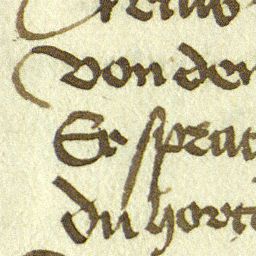 von den
Er sprac
du hort